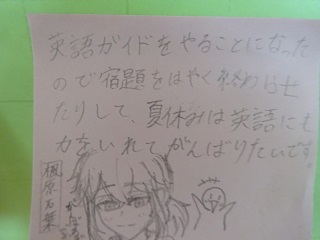 英語ガイドをやることになった
ので宿題をはやく終わらせ
たりして、夏休みは英語にも
力をいれてがんばりたいです。